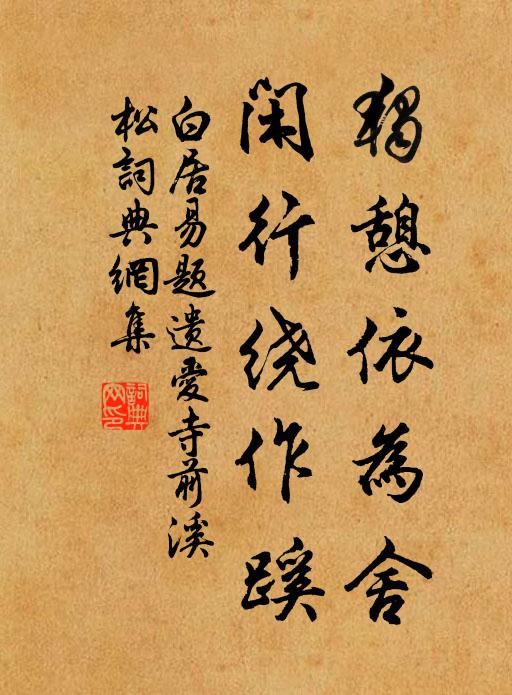 獨憩依為舍
閑行绕作蹊
白居易題遺愛寺前溪
松詞典網集
詞典网印